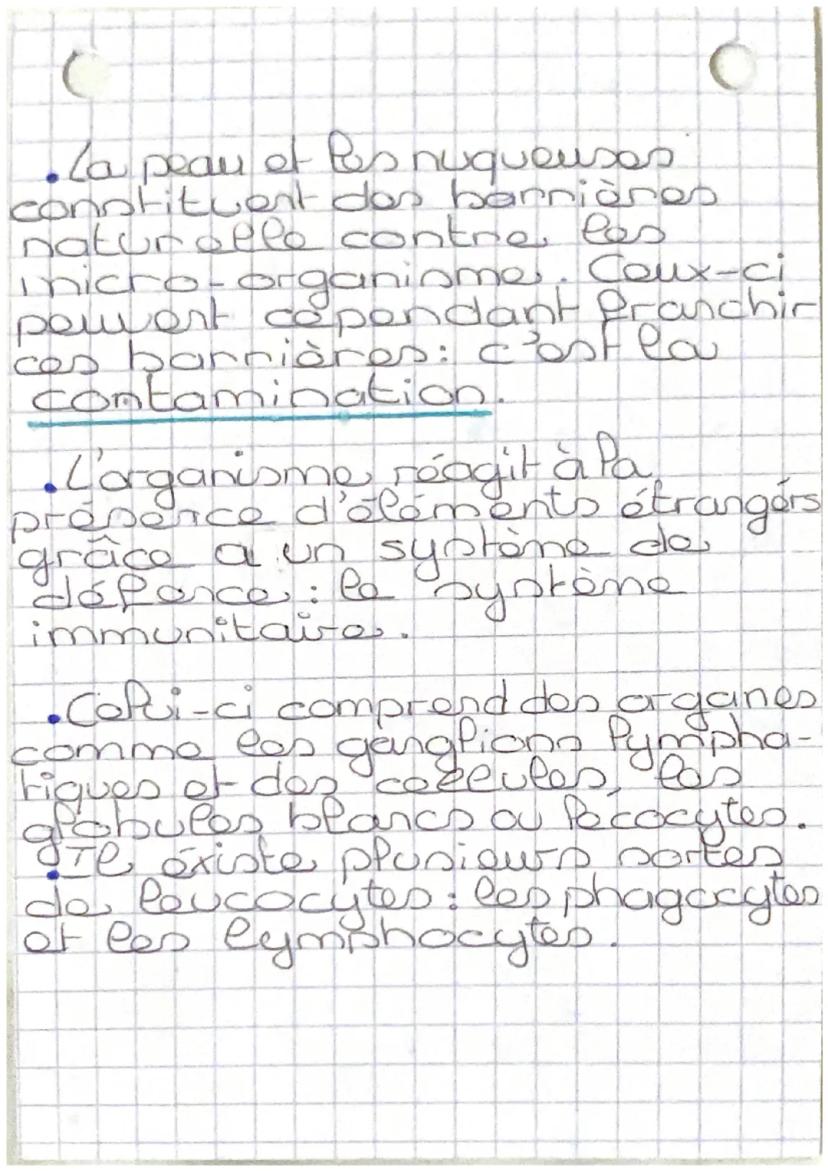 . La peau et les muqueuses
constituent des barrières
naturelle contre les
micro-organisme. Ceux-ci
peuvent cépendant franchir
ces barrières : c'est la
contamination.
. L'organisme réagit à la
présence d'éléments étrangérs
grâce a un système de
défence : le système
immunitaire.
. Celui-ci comprend des organes
comme les ganglions lympha-
tiques et des cellules, les
globules blancs ou lecocytes.
. Il éxiste plusieurs sortes
de leucocytes : les phagocytes
et les lymphocytes.